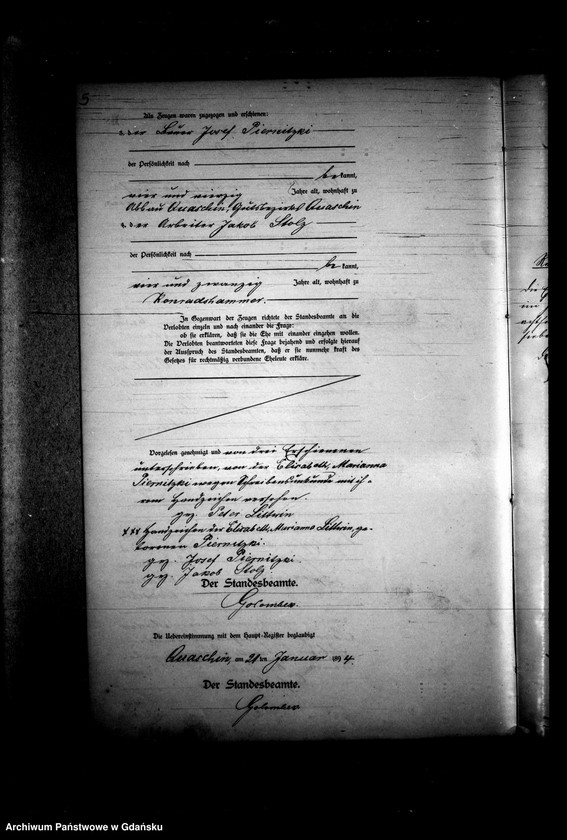 5
Als Zeugen waren zugezogen und erschienen:
1. der Bauer Josef Piernitzki
der Persönlichkeit nach
be kannt,
vier und vierzig Jahre alt, wohnhaft zu
Abbau Quaschin, Gutsbezirk Quaschin
2. der Arbeiter Jakob Stolz
der Persönlichkeit nach
be kannt,
vier und zwanzig Jahre alt, wohnhaft zu
Konradshammer.
In Gegenwart der Zeugen richtete der Standesbeamte an die
Verlobten einzeln und nach einander die Frage:
ob sie erklären, daß sie die Ehe mit einander eingehen wollen.
Die Verlobten beantworteten diese Frage bejahend und erfolgte hierauf
der Ausspruch des Standesbeamten, daß er sie nunmehr kraft des
Gesetzes für rechtmäßig verbundene Eheleute erkläre.
Vorgelesen genehmigt und von drei Erschienenen
unterschrieben, von der Elisabeth, Marianna
Piernitzki wegen Schreibensunkunde mit ih-
rem Handzeichen versehen.
gez. Peter Litterin
XXX Handzeichen der Elisabeth, Marianna Litterin, ge-
borenen Piernitzki.
gez. Josef Piernitzki
gez. Jakob Stolz
Der Standesbeamte.
Golombek
Die Uebereinstimmung mit dem Haupt-Register beglaubigt
Quaschin, am 21 ten Januar 1894.
Der Standesbeamte.
Golombek
Archiwum Państwowe w Gdańsku